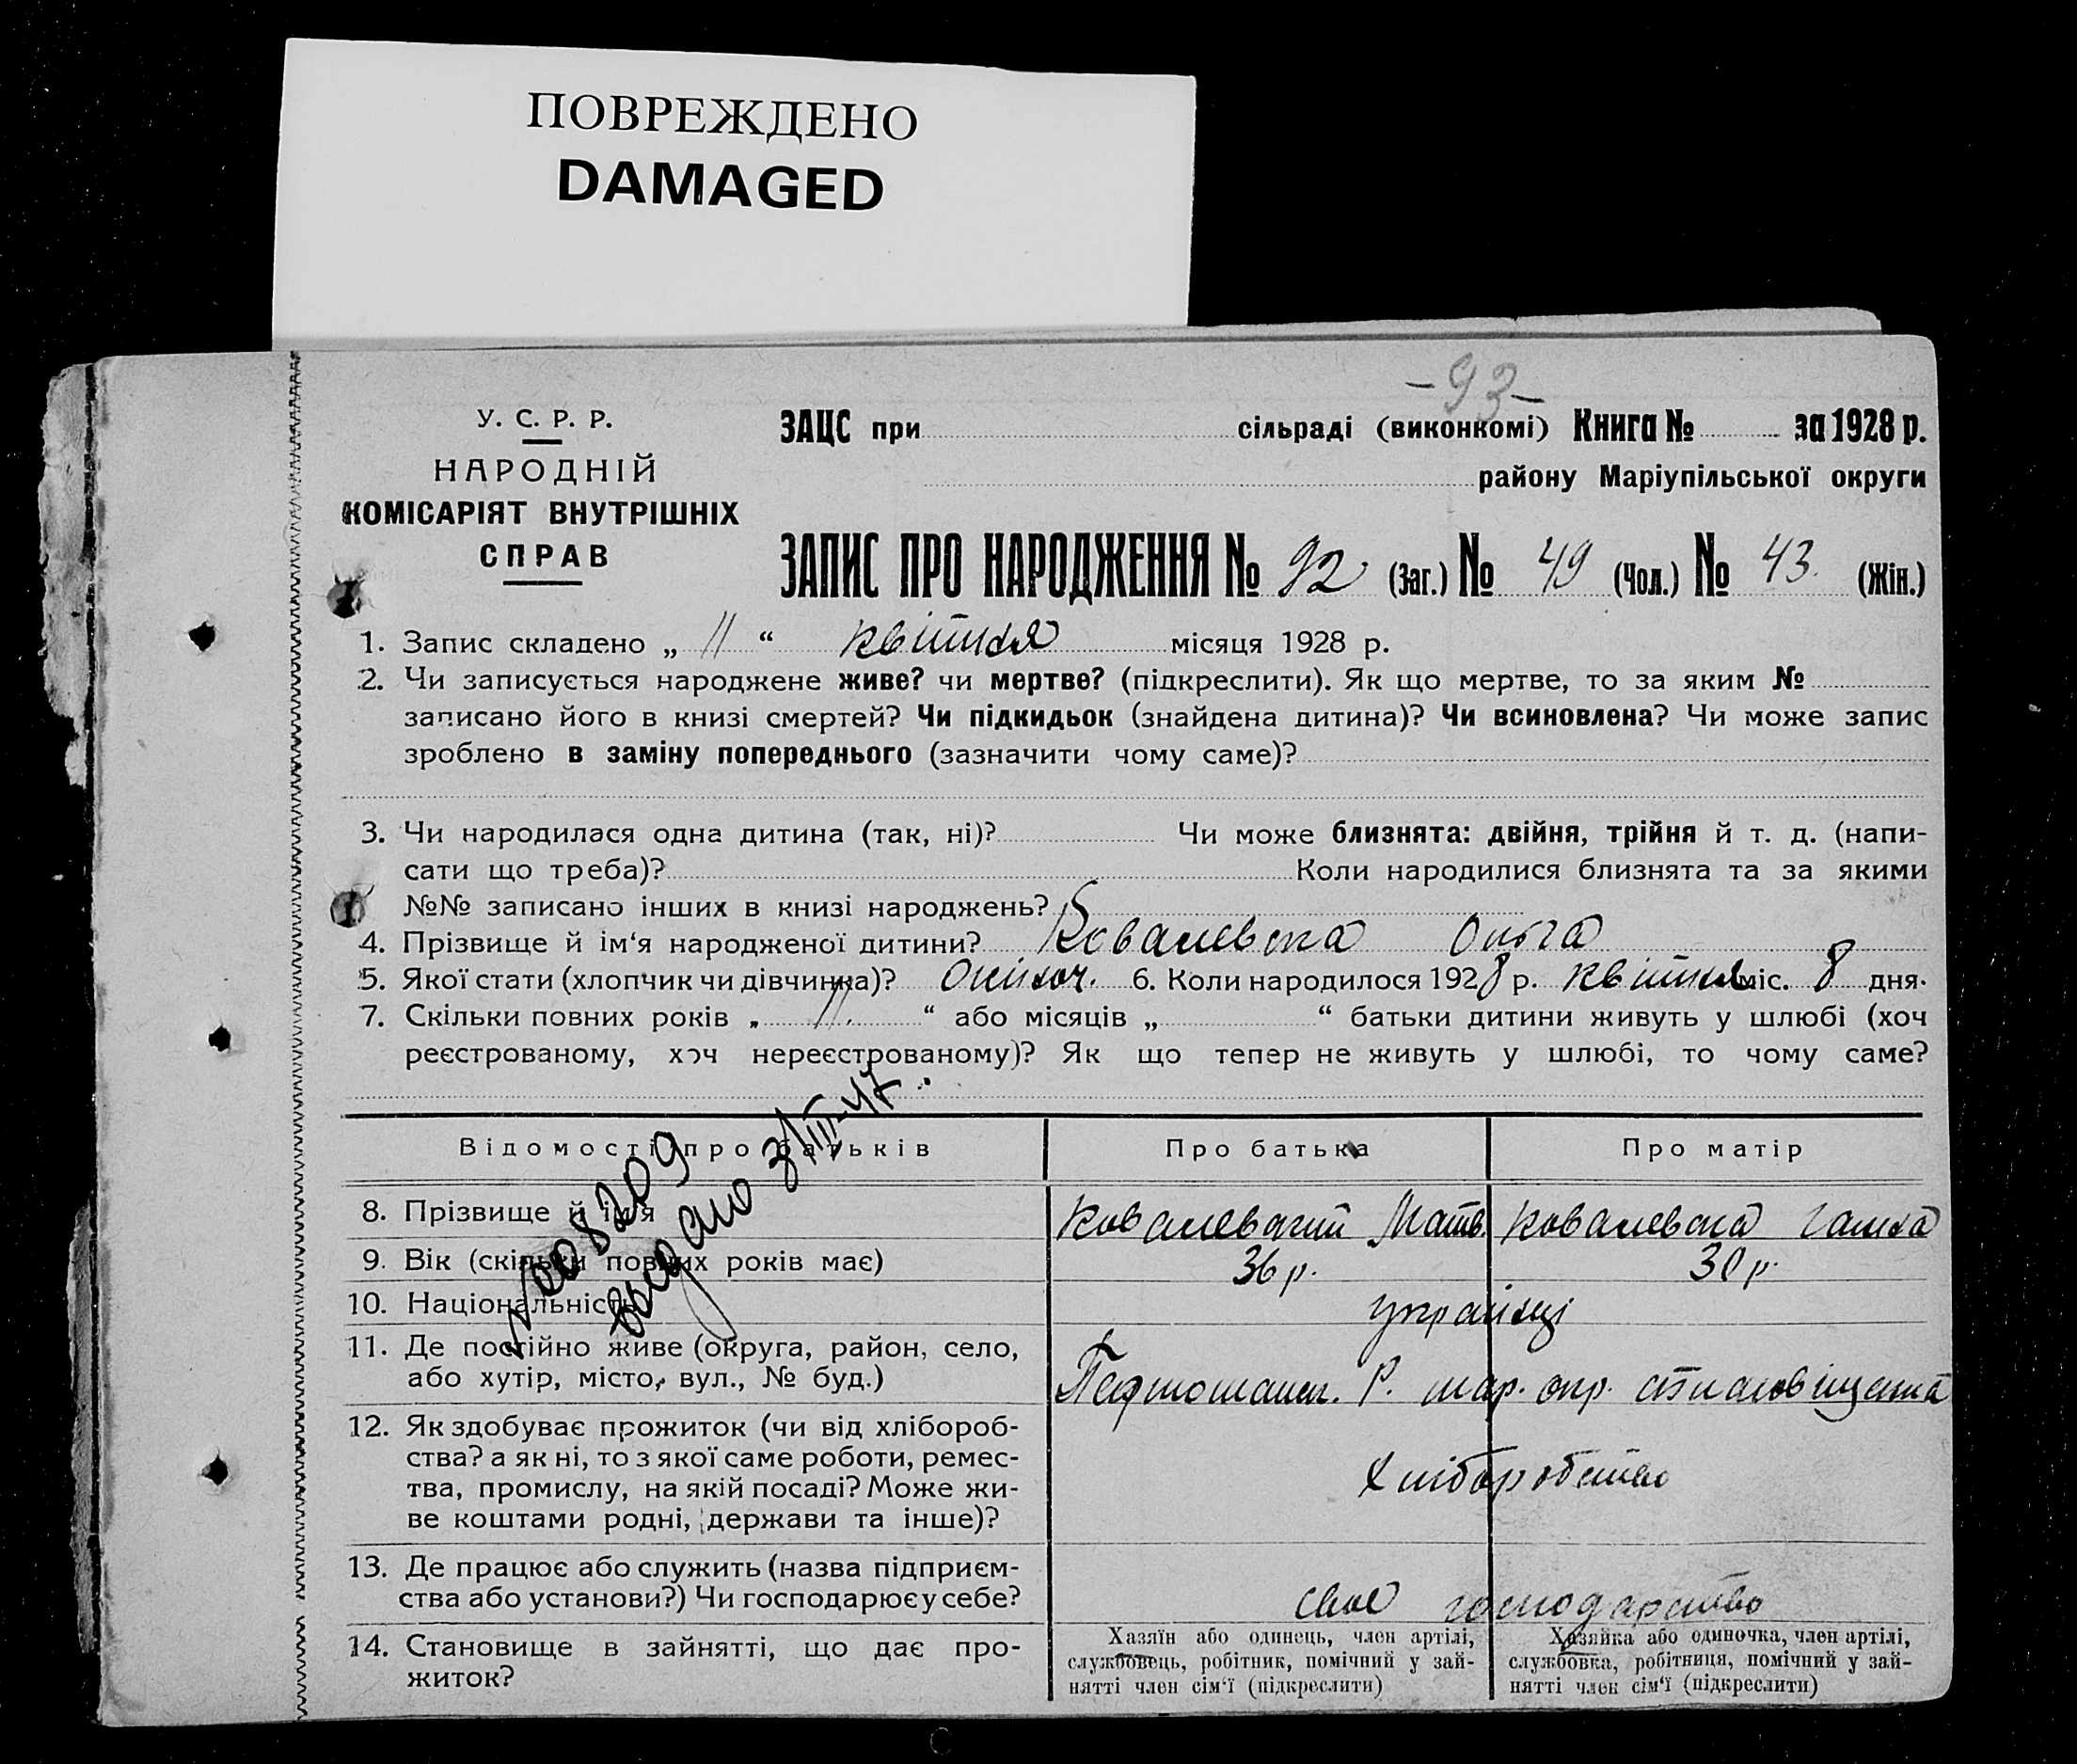 ПОВРЕЖДЕНО
DAMAGED
-93-
У. С. Р. Р.
НАРОДНІЙ
КОМІСАРІЯТ ВНУТРІШНІХ
СПРАВ
ЗАЦС при сільраді (виконкомі) Книга № за 1928 р.
району Маріупільської округи
ЗАПИС ПРО НАРОДЖЕННЯ № 92 (Заг.) № 49 (Чол.) № 43. (Жін.)
1. Запис складено „ 11 “ квітня місяця 1928 р.
2. Чи записується народжене живе? чи мертве? (підкреслити). Як що мертве, то за яким №
записано його в книзі смертей? Чи підкидьок (знайдена дитина)? Чи всиновлена? Чи може запис
зроблено в заміну попереднього (зазначити чому саме)?
3. Чи народилася одна дитина (так, ні)? Чи може близнята: двійня, трійня й т. д. (напи-
сати що треба)? Коли народилися близнята та за якими
№№ записано інших в книзі народжень?
4. Прізвище й ім‘я народженої дитини? Ковалевська Ольга
5. Якої стати (хлопчик чи дівчинка)? жіноч. 6. Коли народилося 1928 р. квітня міс. 8 дня.
7. Скільки повних років „ 11. “ або місяців „ “ батьки дитини живуть у шлюбі (хоч
реєстрованому, хоч нереєстрованому)? Як що тепер не живуть у шлюбі, то чому саме?
Відомості про батьків Про батька Про матір
8. Прізвище й ім‘я Ковалевский Матв. Ковалевска Ганна
9. Вік (скільки повних років має) 36 р. 30 р.
10. Національність українці
11. Де постійно живе (округа, район, село,
або хутір, місто, вул., № буд.) Р. мар. окр.
12. Як здобуває прожиток (чи від хлібороб-
ства? а як ні, то з якої саме роботи, ремес-
тва, промислу, на якій посаді? Може жи-
ве коштами родні, держави та інше)? Хліборобство
13. Де працює або служить (назва підприєм-
ства або установи?) Чи господарює у себе? своє господарство
14. Становище в зайнятті, що дає про-
житок?
Хазяїн або одинець, член артілі,
службовець, робітник, помічний у зай-
нятті член сім‘ї (підкреслити)
Хазяйка або одиночка, член артілі,
службовка, робітниця, помічний у зай-
нятті член сім‘ї (підкреслити)
№ 008209
выдано 3/III-47.